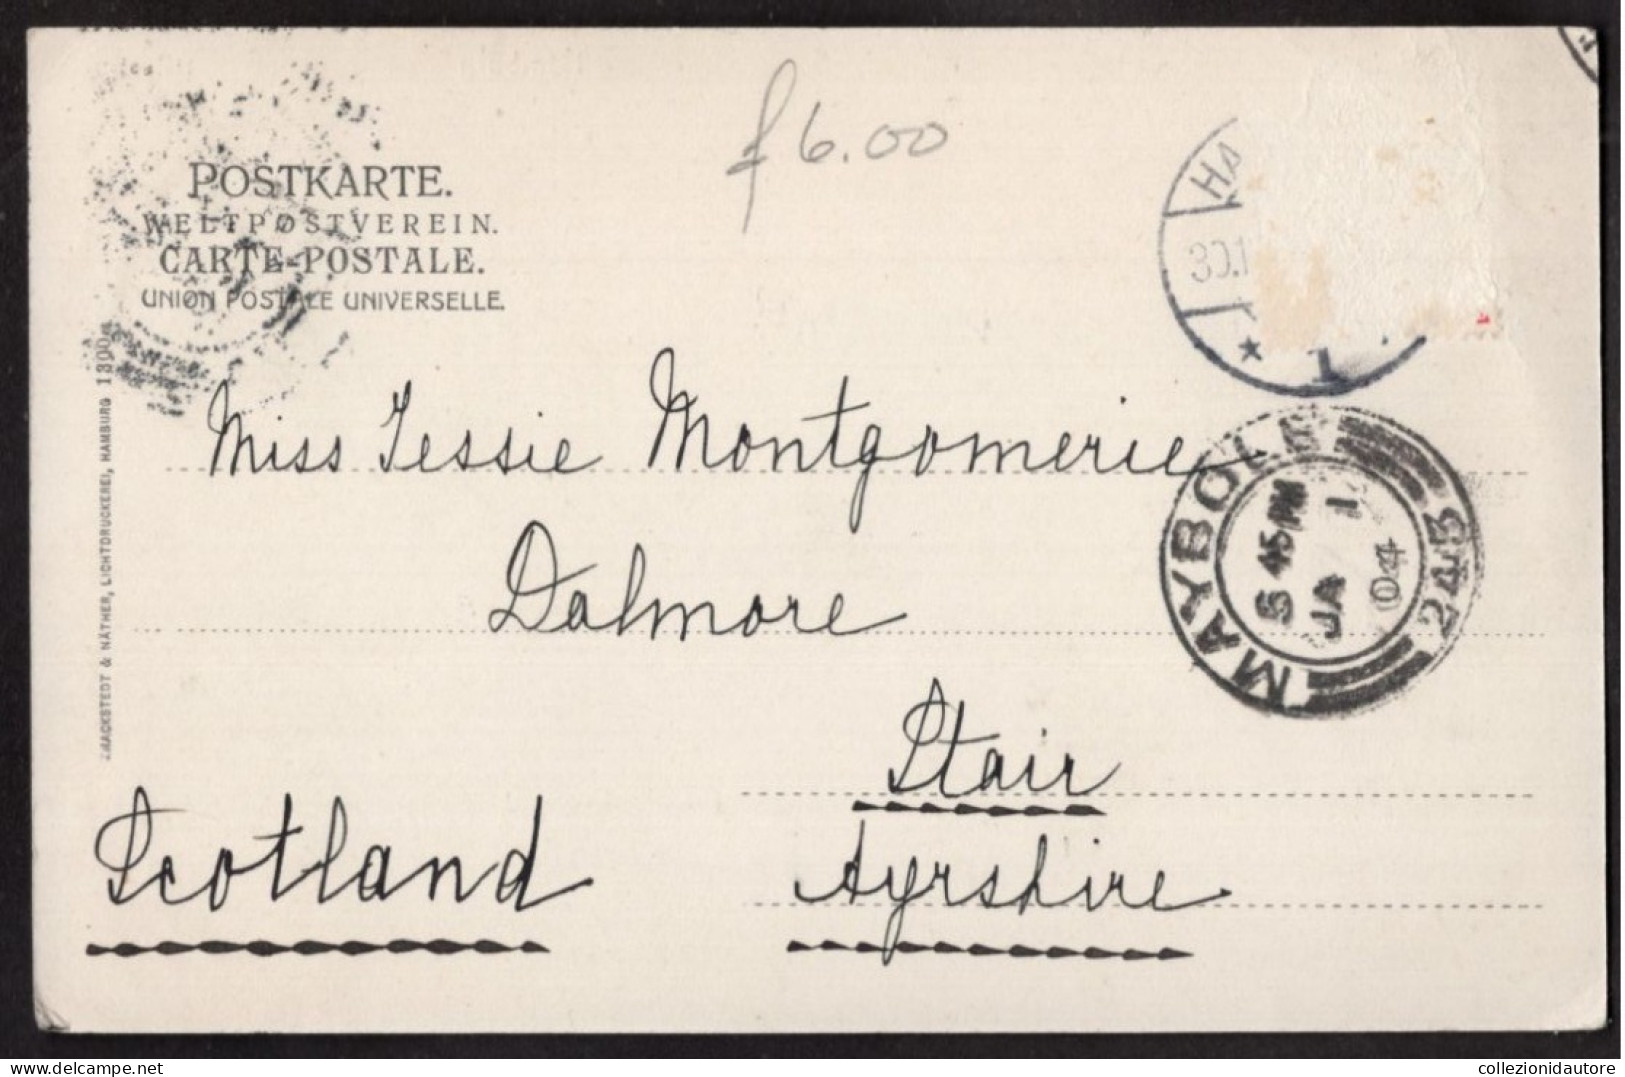 £6.00
POSTKARTE.
WELTPOSTVEREIN.
CARTE-POSTALE.
UNION POSTALE UNIVERSELLE.
KNACKSTEDT & NÄTHER, LICHTDRUCKEREI, HAMBURG
30.1
1
MAYBOLE
5 45 PM
JA 1
04
243
Miss Jessie Montgomerie
Dalmore
Stair
Ayrshire
Scotland
collezionidautore
delcampe.net